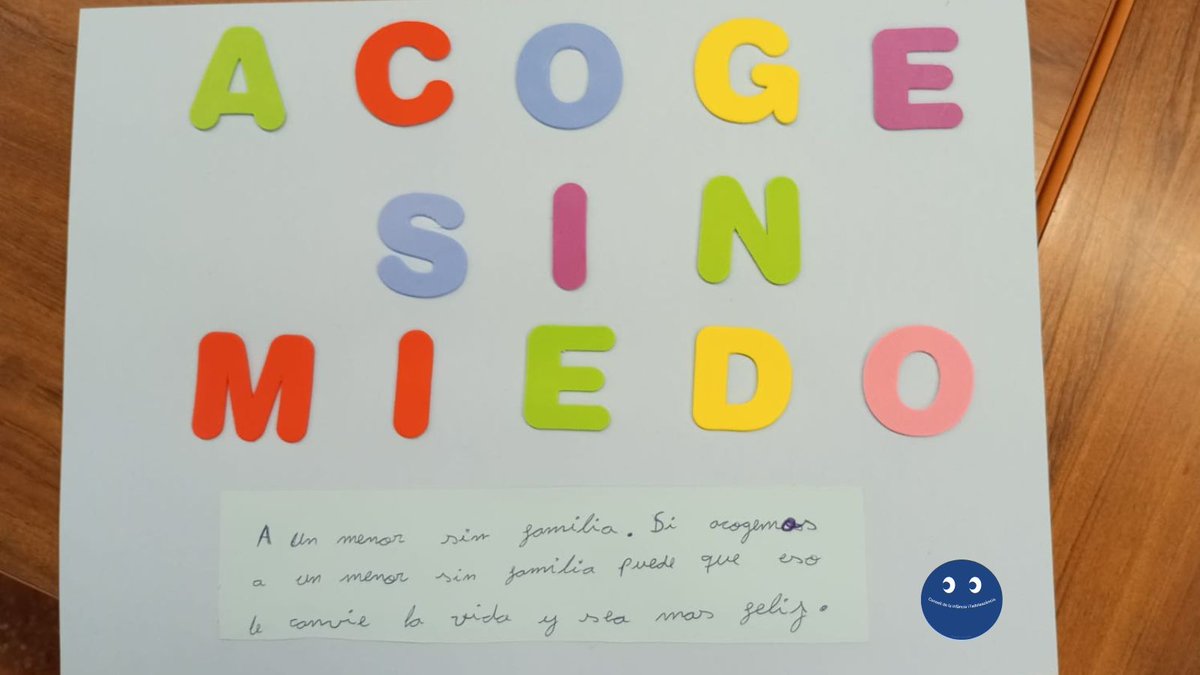 ACOGE
SIN
MIEDO
A un menor sin familia. Si acogemos
a un menor sin familia puede que eso
le canvie la vida y sea mas feliz.
Consell de la infància i l'adolescència